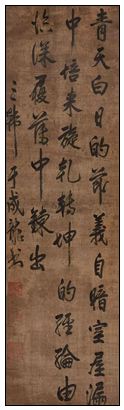 青天白日的節義自暗室屋漏
中培来旋乹轉坤的經綸由
臨深履薄中錬出
三韓于成龍書